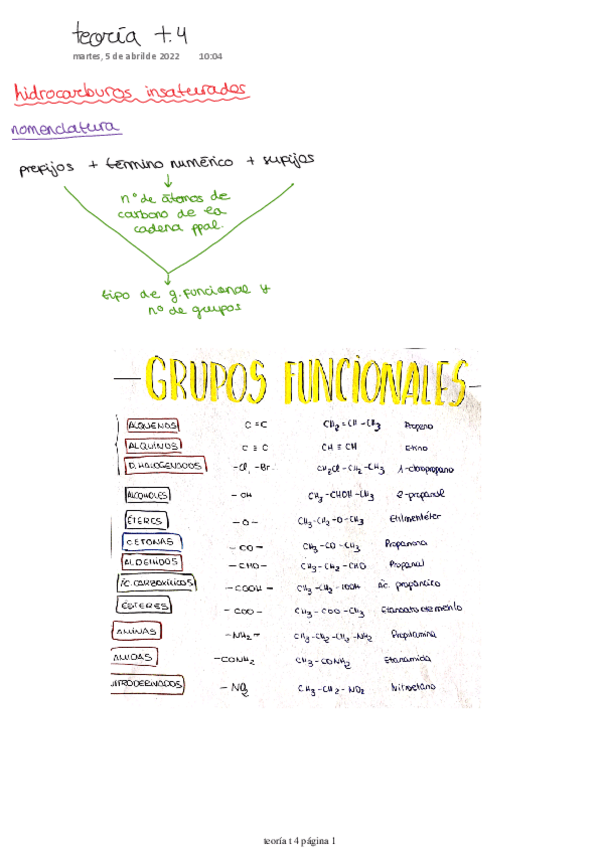 teoría t.4
martes, 5 de abril de 2022 10:04
hidrocarburos insaturados
nomenclatura
prefijos + término numérico + sufijos
nº de átomos de
carbono de la
cadena ppal.
tipo de g. funcional y
nº de grupos
GRUPOS FUNCIONALES
ALQUENOS C=C CH2=CH-CH3 Propeno
ALQUINOS C≡C CH≡CH Etino
D. HALOGENADOS -Cl, -Br. CH2Cl-CH2-CH3 1-cloropropano
ALCOHOLES -OH CH3-CHOH-CH3 2-propanol
ÉTERES -O- CH3-CH2-O-CH3 Etilmetiléter
CETONAS -CO- CH3-CO-CH3 Propanona
ALDEHIDOS -CHO- CH3-CH2-CHO Propanal
ÁC. CARBOXÍLICOS -COOH- CH3-CH2-COOH ác. propanoico
ÉSTERES -COO- CH3-COO-CH3 Etanoato de metilo
AMINAS -NH2- CH3-CH2-CH2-NH2 Propilamina
AMIDAS -CONH2 CH3-CONH2 Etanamida
NITRODERIVADOS -NO2 CH3-CH2-NO2 Nitroetano
teoría t 4 página 1